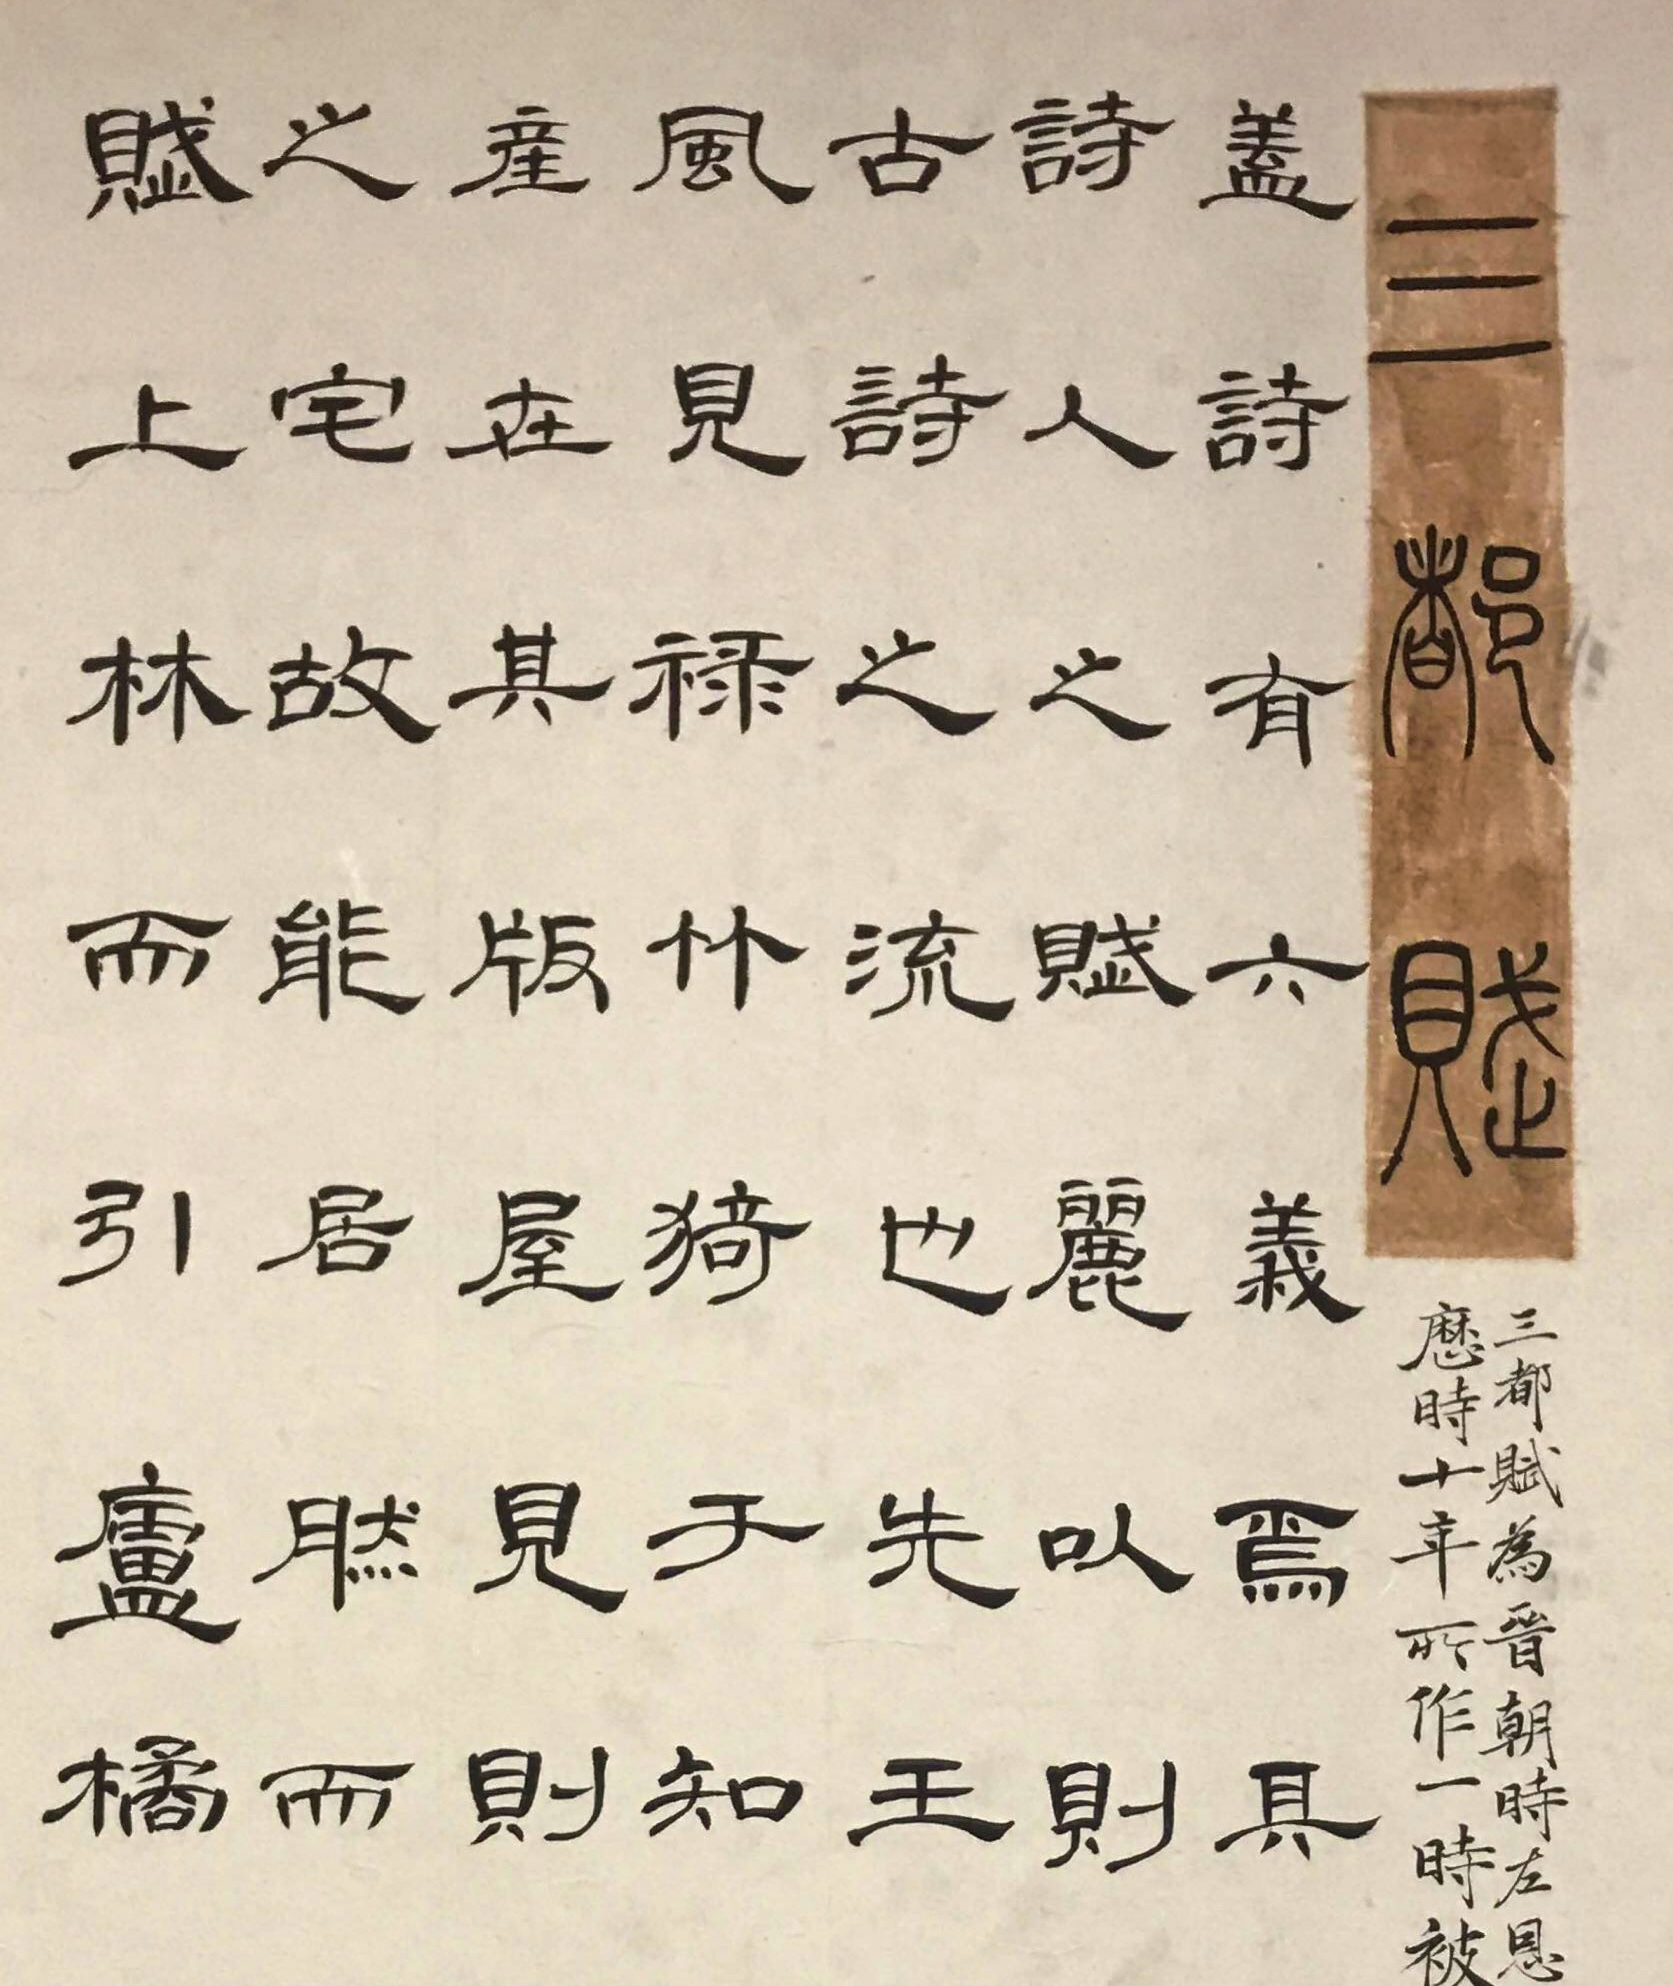 三都賦
三都賦為晉朝時左思
歷時十年所作一時被
蓋詩有六義焉具
詩人之賦麗以則
古詩之流也先王
風見禄竹猗于知
產在其版屋見則
之宅故能居脁而
賦上林而引廬橘